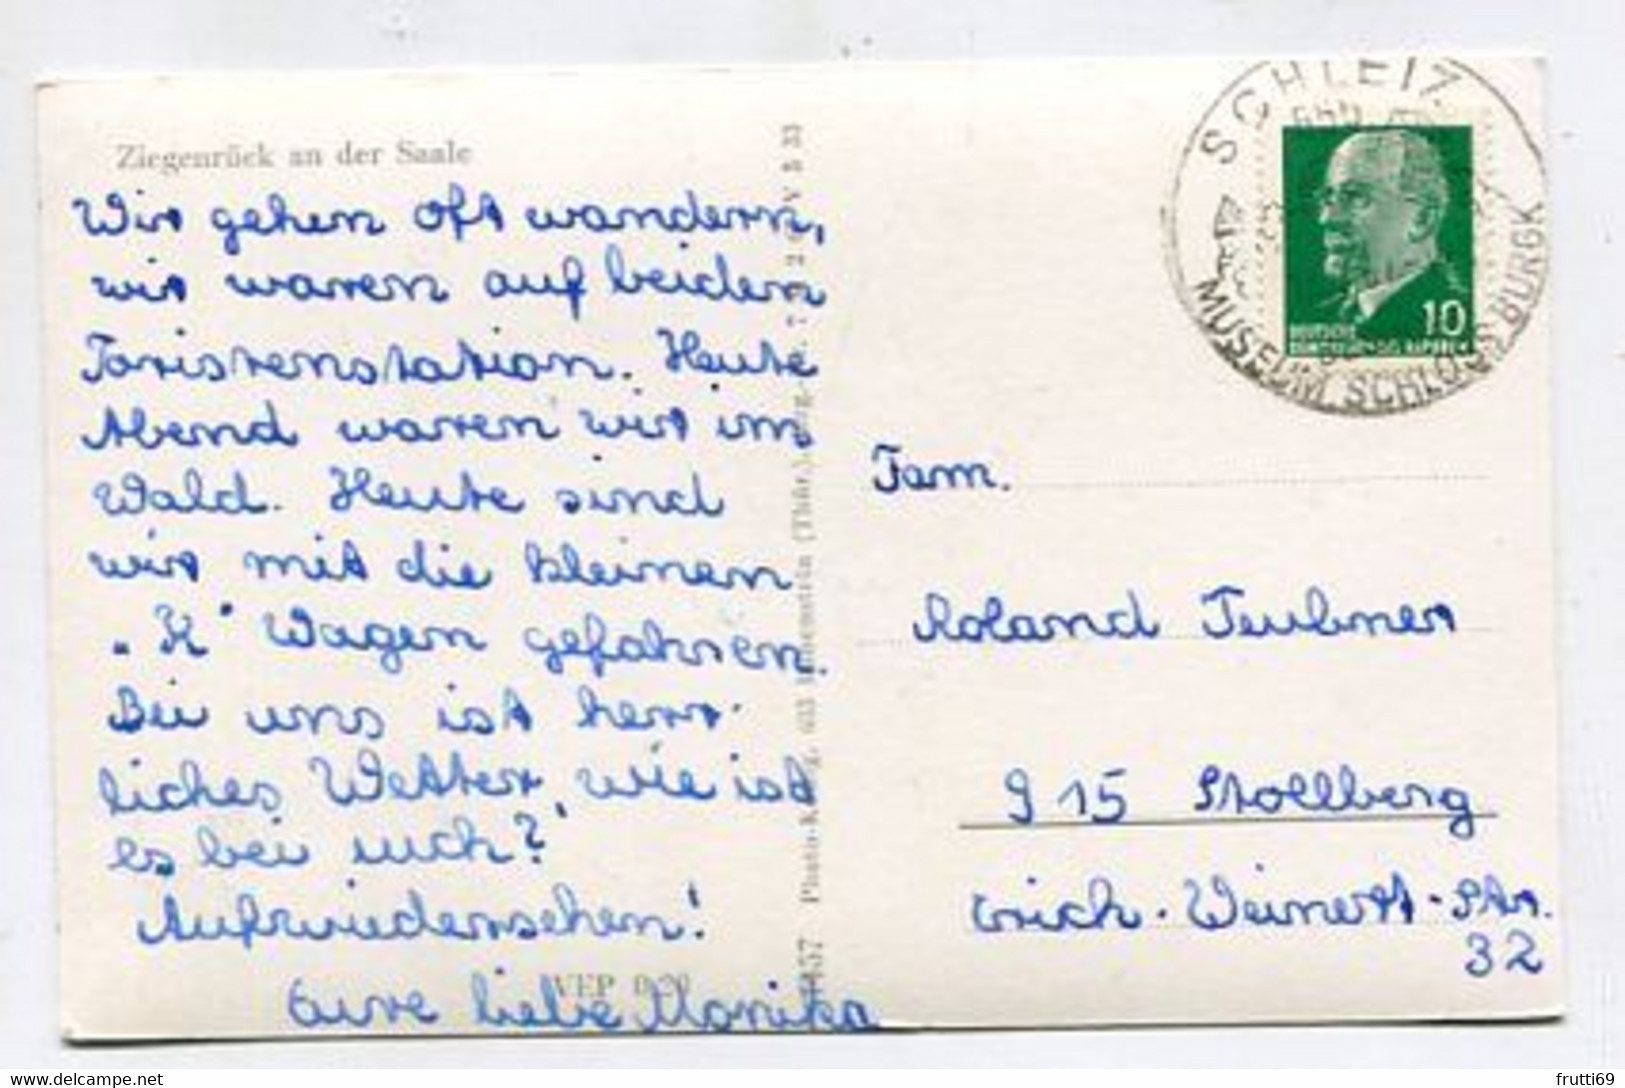 Ziegenrück an der Saale
Wir gehen oft wandern,
wir waren auf beiden
Toristenstation. Heute
Abend waren wir im
Wald. Heute sind
wir mit die kleinen
„K" Wagen gefahren.
Bei uns ist herr-
liches Wetter, wie ist
es bei euch?
Aufwiedersehen!
Eure liebe Monika
VEP 0,20
V 8 33
(Thür.)
Photo-K
SCHLEIZ
MUSEUM SCHLOSS BURGK
10
DEUTSCHE
Fam.
Roland Teubner
915 Stollberg
Erich-Weinert-Str.
32
frutti69